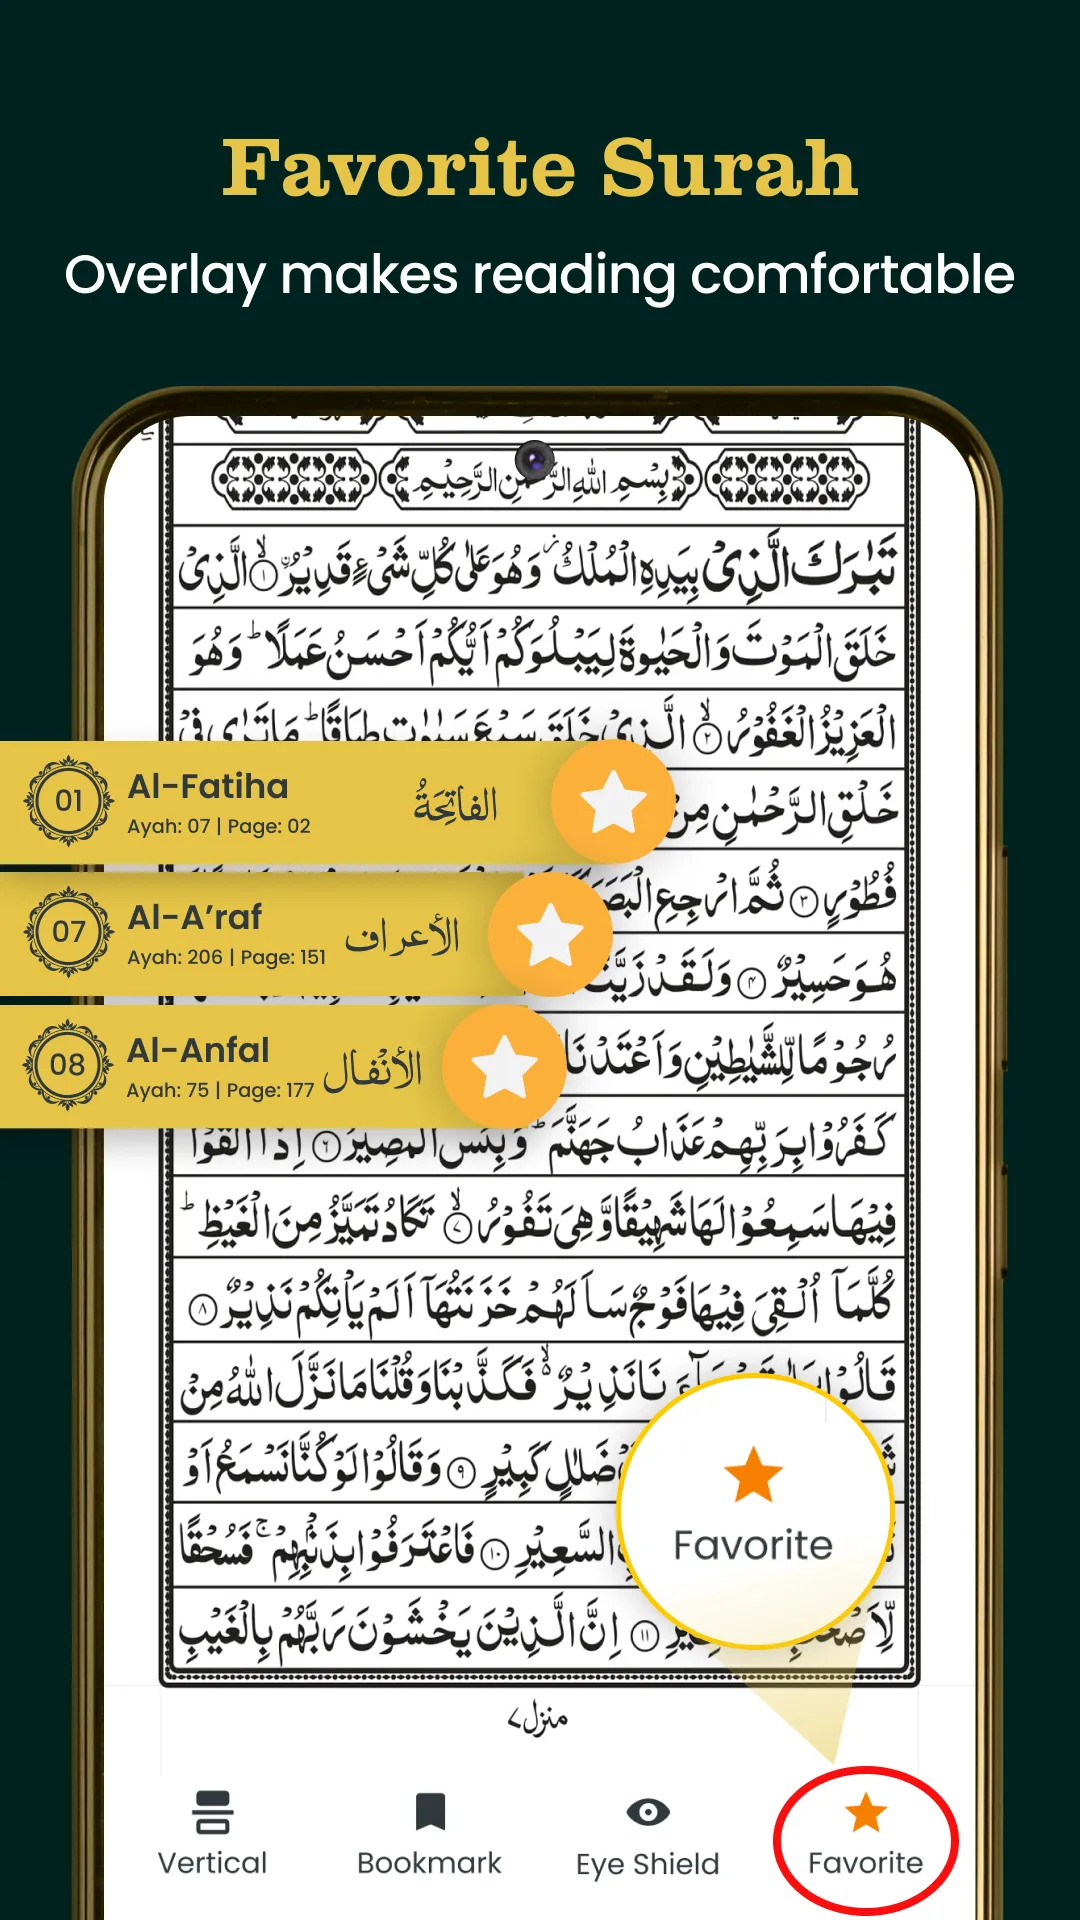 Favorite Surah
Overlay makes reading comfortable
بِسْمِ اللهِ الرَّحْمٰنِ الرَّحِيْمِ
تَبٰرَكَ الَّذِىْ بِيَدِهِ الْمُلْكُ ۡ وَهُوَ عَلٰى كُلِّ شَىْءٍ قَدِيْرُ ۙ﴿۱﴾ الَّذِىْ
خَلَقَ الْمَوْتَ وَالْحَيٰوةَ لِيَبْلُوَكُمْ اَيُّكُمْ اَحْسَنُ عَمَلًا ؕ وَهُوَ
الْعَزِيْزُ الْغَفُوْرُ ۙ﴿۲﴾ الَّذِىْ خَلَقَ سَبْعَ سَمٰوٰتٍ طِبَاقًا ؕ مَا تَرٰى فِىْ
01
Al-Fatiha
الفاتِحَةُ
Ayah: 07 | Page: 02
خَلْقِ الرَّحْمٰنِ مِنْ
07
Al-A’raf
الأعراف
Ayah: 206 | Page: 151
فُطُوْرٍ ﴿۳﴾ ثُمَّ ارْجِعِ الْبَصَرَ
هُوَ حَسِيْرٌ ﴿۴﴾ وَلَقَدْ زَيَّنَّا
08
Al-Anfal
الأنْفال
Ayah: 75 | Page: 177
رُجُوْمًا لِّلشَّيٰطِيْنِ وَاَعْتَدْنَا
كَفَرُوْا بِرَبِّهِمْ عَذَابُ جَهَنَّمَ ؕ وَبِئْسَ الْمَصِيْرُ ﴿۶﴾ اِذَاۤ اُلْقُوْا
فِيْهَا سَمِعُوْا لَهَا شَهِيْقًا وَّهِىَ تَفُوْرُ ۙ﴿۷﴾ تَكَادُ تَمَيَّزُ مِنَ الْغَيْظِ ؕ
كُلَّمَاۤ اُلْقِىَ فِيْهَا فَوْجٌ سَاَلَهُمْ خَزَنَتُهَاۤ اَلَمْ يَاْتِكُمْ نَذِيْرٌ ﴿۸﴾
قَالُوْا بَلٰى قَدْ جَآءَنَا نَذِيْرٌ ۙ فَكَذَّبْنَا وَقُلْنَا مَا نَزَّلَ اللهُ مِنْ
ضَلٰلٍ كَبِيْرٍ ﴿۹﴾ وَقَالُوْا لَوْ كُنَّا نَسْمَعُ اَوْ
السَّعِيْرِ ﴿۱۰﴾ فَاعْتَرَفُوْا بِذَنْۢبِهِمْ ۚ فَسُحْقًا
لِّاَصْحٰبِ السَّعِيْرِ ﴿۱۱﴾ اِنَّ الَّذِيْنَ يَخْشَوْنَ رَبَّهُمْ بِالْغَيْبِ
Favorite
منزل۷
Vertical
Bookmark
Eye Shield
Favorite